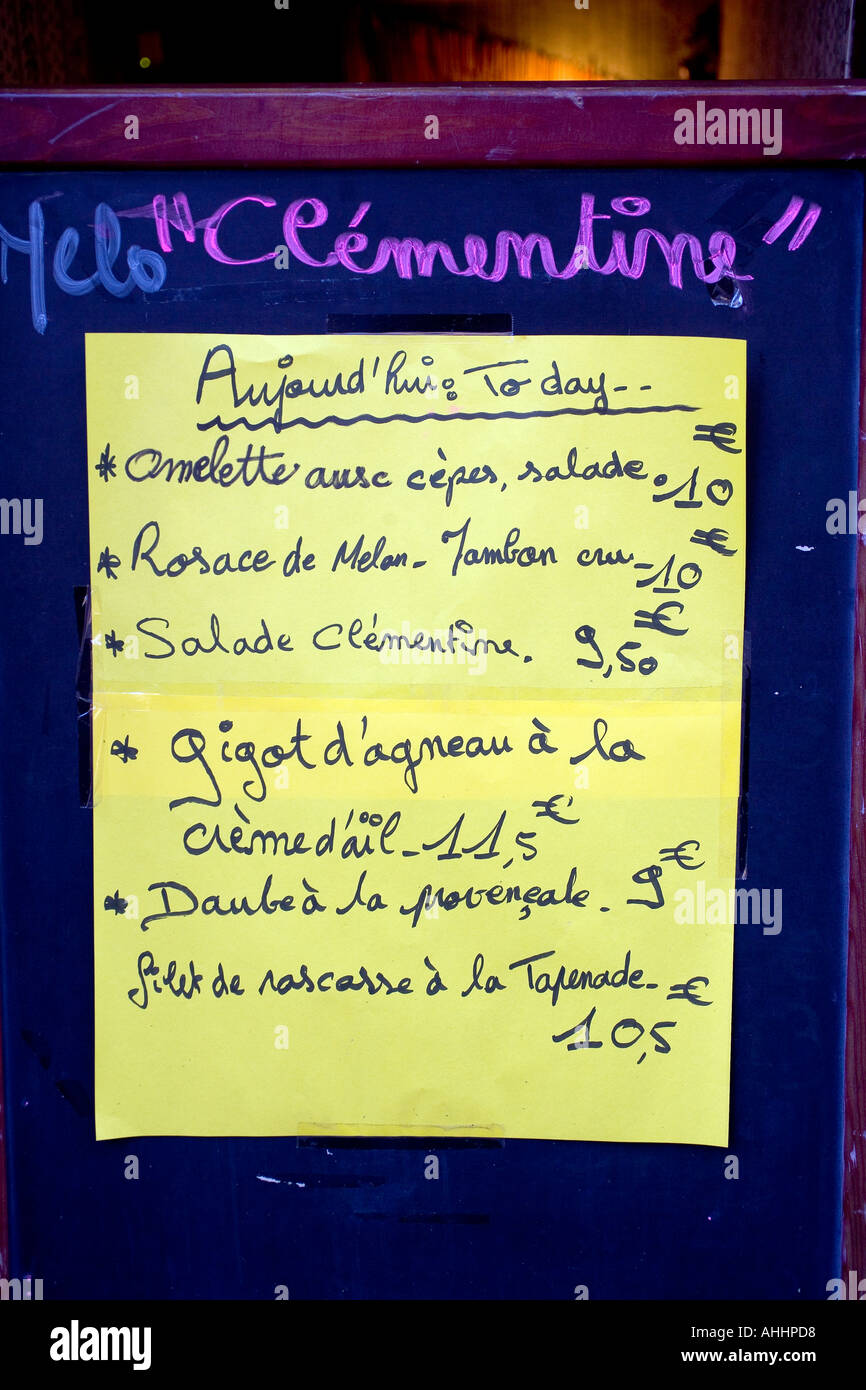 Melo "Clémentine"
Aujourd'hui: To day--
* Omelette aux cèpes, salade. 10€
* Rosace de Melon - Jambon cru - 10€
* Salade Clémentine. 9,50€
* Gigot d'agneau à la
crème d'aïl - 11,5€
* Daube à la provençale. 9€
filet de rascasse à la Tapenade - €
10,5
alamy
Image ID: AHHPD8
www.alamy.com